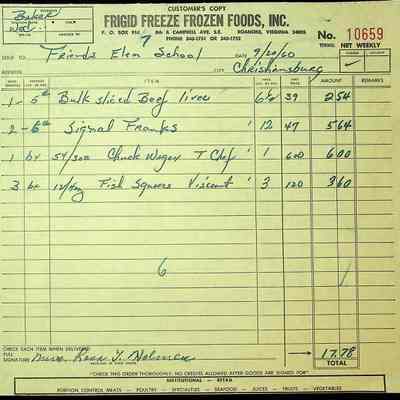 CUSTOMER'S COPY
FRIGID FREEZE FROZEN FOODS, INC.
Baker
P. O. BOX 914 8th & CAMPBELL AVE. S.E. ROANOKE, VIRGINIA 24005
PHONE 342-1751 OR 342-1752
No. 10659
TERMS: NET WEEKLY
TO Friends Elem School 9/20/60
ADDRESS CITY Christiansburg
ITEM AMOUNT REMARKS
1 - 5# Bulk sliced Beef liver 39 2 54
2 - 6# Signal Franks 12 47 5 64
1 bx 54/3oz Chuck Wagon T Chef 1 600 6 00
3 bx Fish Squares Viscount 3 120 3 60
6
CHECK EACH ITEM WHEN DELIVERED
FULL SIGNATURE 17.78
TOTAL
"CHECK THIS ORDER THOROUGHLY. NO CREDITS ALLOWED AFTER GOODS ARE SIGNED FOR"
INSTITUTIONAL - RETAIL
PORTION CONTROL MEATS — POULTRY SPECIALTIES — SEAFOOD — JUICES — FRUITS — VEGETABLES